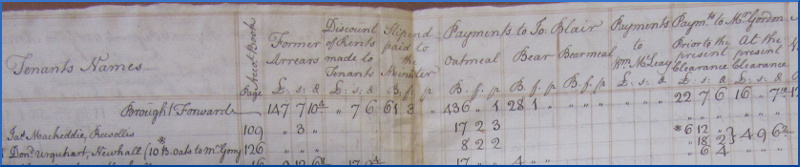 Tenants Names
Page Acct Book
Former Arrears
Discount of Rents made to Tenants
Stipend paid to the Minister
Payments to Jo: Blair
Oatmeal Bear Bearmeal
Payments to Wm McLeay
Paymts to Mr Gordon
Prior to the present Clearance
At the present Clearance
£. s: & £. s: & B. f. p B. f. p B. f. p B. f. p £. s. & £. s. & £. s. &
Brought Forward 147 7 10d „ 7 6 61 3 „ 436 „ 1 28 1 „ „ „ „ „ „ „ 22 7 6 16 „ 7
Jas Mackeddie, 109 „ 3 „ 17 2 3 *6 12 „
Dond Urquhart, Newhall (10 B. oats to Mr Gorn) 126 8 2 2 „ 18 2 4 9 6
„ 6 4